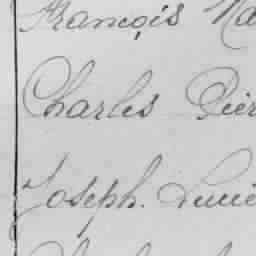 François Na
Charles Pier
Joseph. Lucie